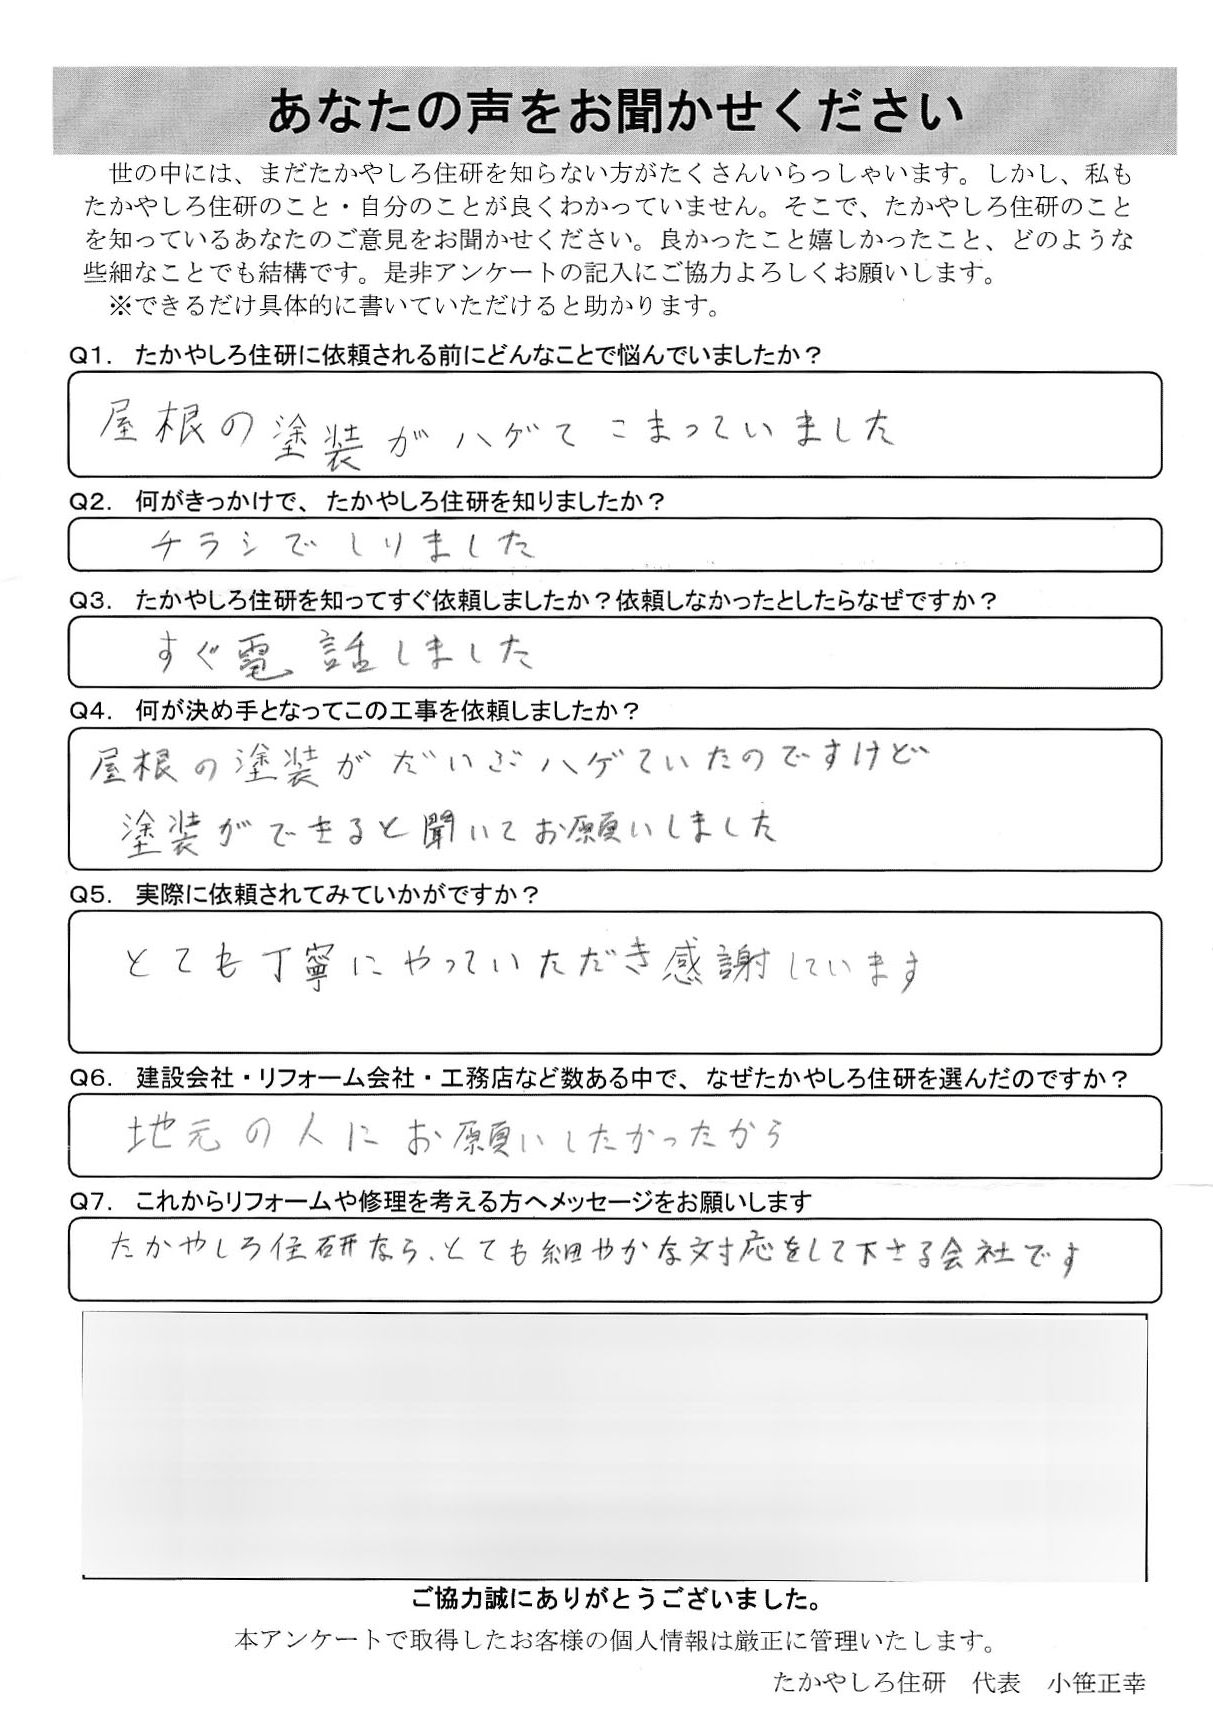 あなたの声をお聞かせください
世の中には、まだたかやしろ住研を知らない方がたくさんいらっしゃいます。しかし、私も
たかやしろ住研のこと・自分のことが良くわかっていません。そこで、たかやしろ住研のこと
を知っているあなたのご意見をお聞かせください。良かったこと嬉しかったこと、どのような
些細なことでも結構です。是非アンケートの記入にご協力よろしくお願いします。
※できるだけ具体的に書いていただけると助かります。
Q1. たかやしろ住研に依頼される前にどんなことで悩んでいましたか？
屋根の塗装がハゲてこまっていました
Q2. 何がきっかけで、たかやしろ住研を知りましたか？
チラシでしりました
Q3. たかやしろ住研を知ってすぐ依頼しましたか？依頼しなかったとしたらなぜですか？
すぐ電話しました
Q4. 何が決め手となってこの工事を依頼しましたか？
屋根の塗装がだいぶハゲていたのですけど
塗装ができると聞いてお願いしました
Q5. 実際に依頼されてみていかがですか？
とても丁寧にやっていただき感謝しています
Q6. 建設会社・リフォーム会社・工務店など数ある中で、なぜたかやしろ住研を選んだのですか？
地元の人にお願いしたかったから
Q7. これからリフォームや修理を考える方へメッセージをお願いします
たかやしろ住研なら、とても細やかな対応をして下さる会社です
ご協力誠にありがとうございました。
本アンケートで取得したお客様の個人情報は厳正に管理いたします。
たかやしろ住研　代表　小笹正幸